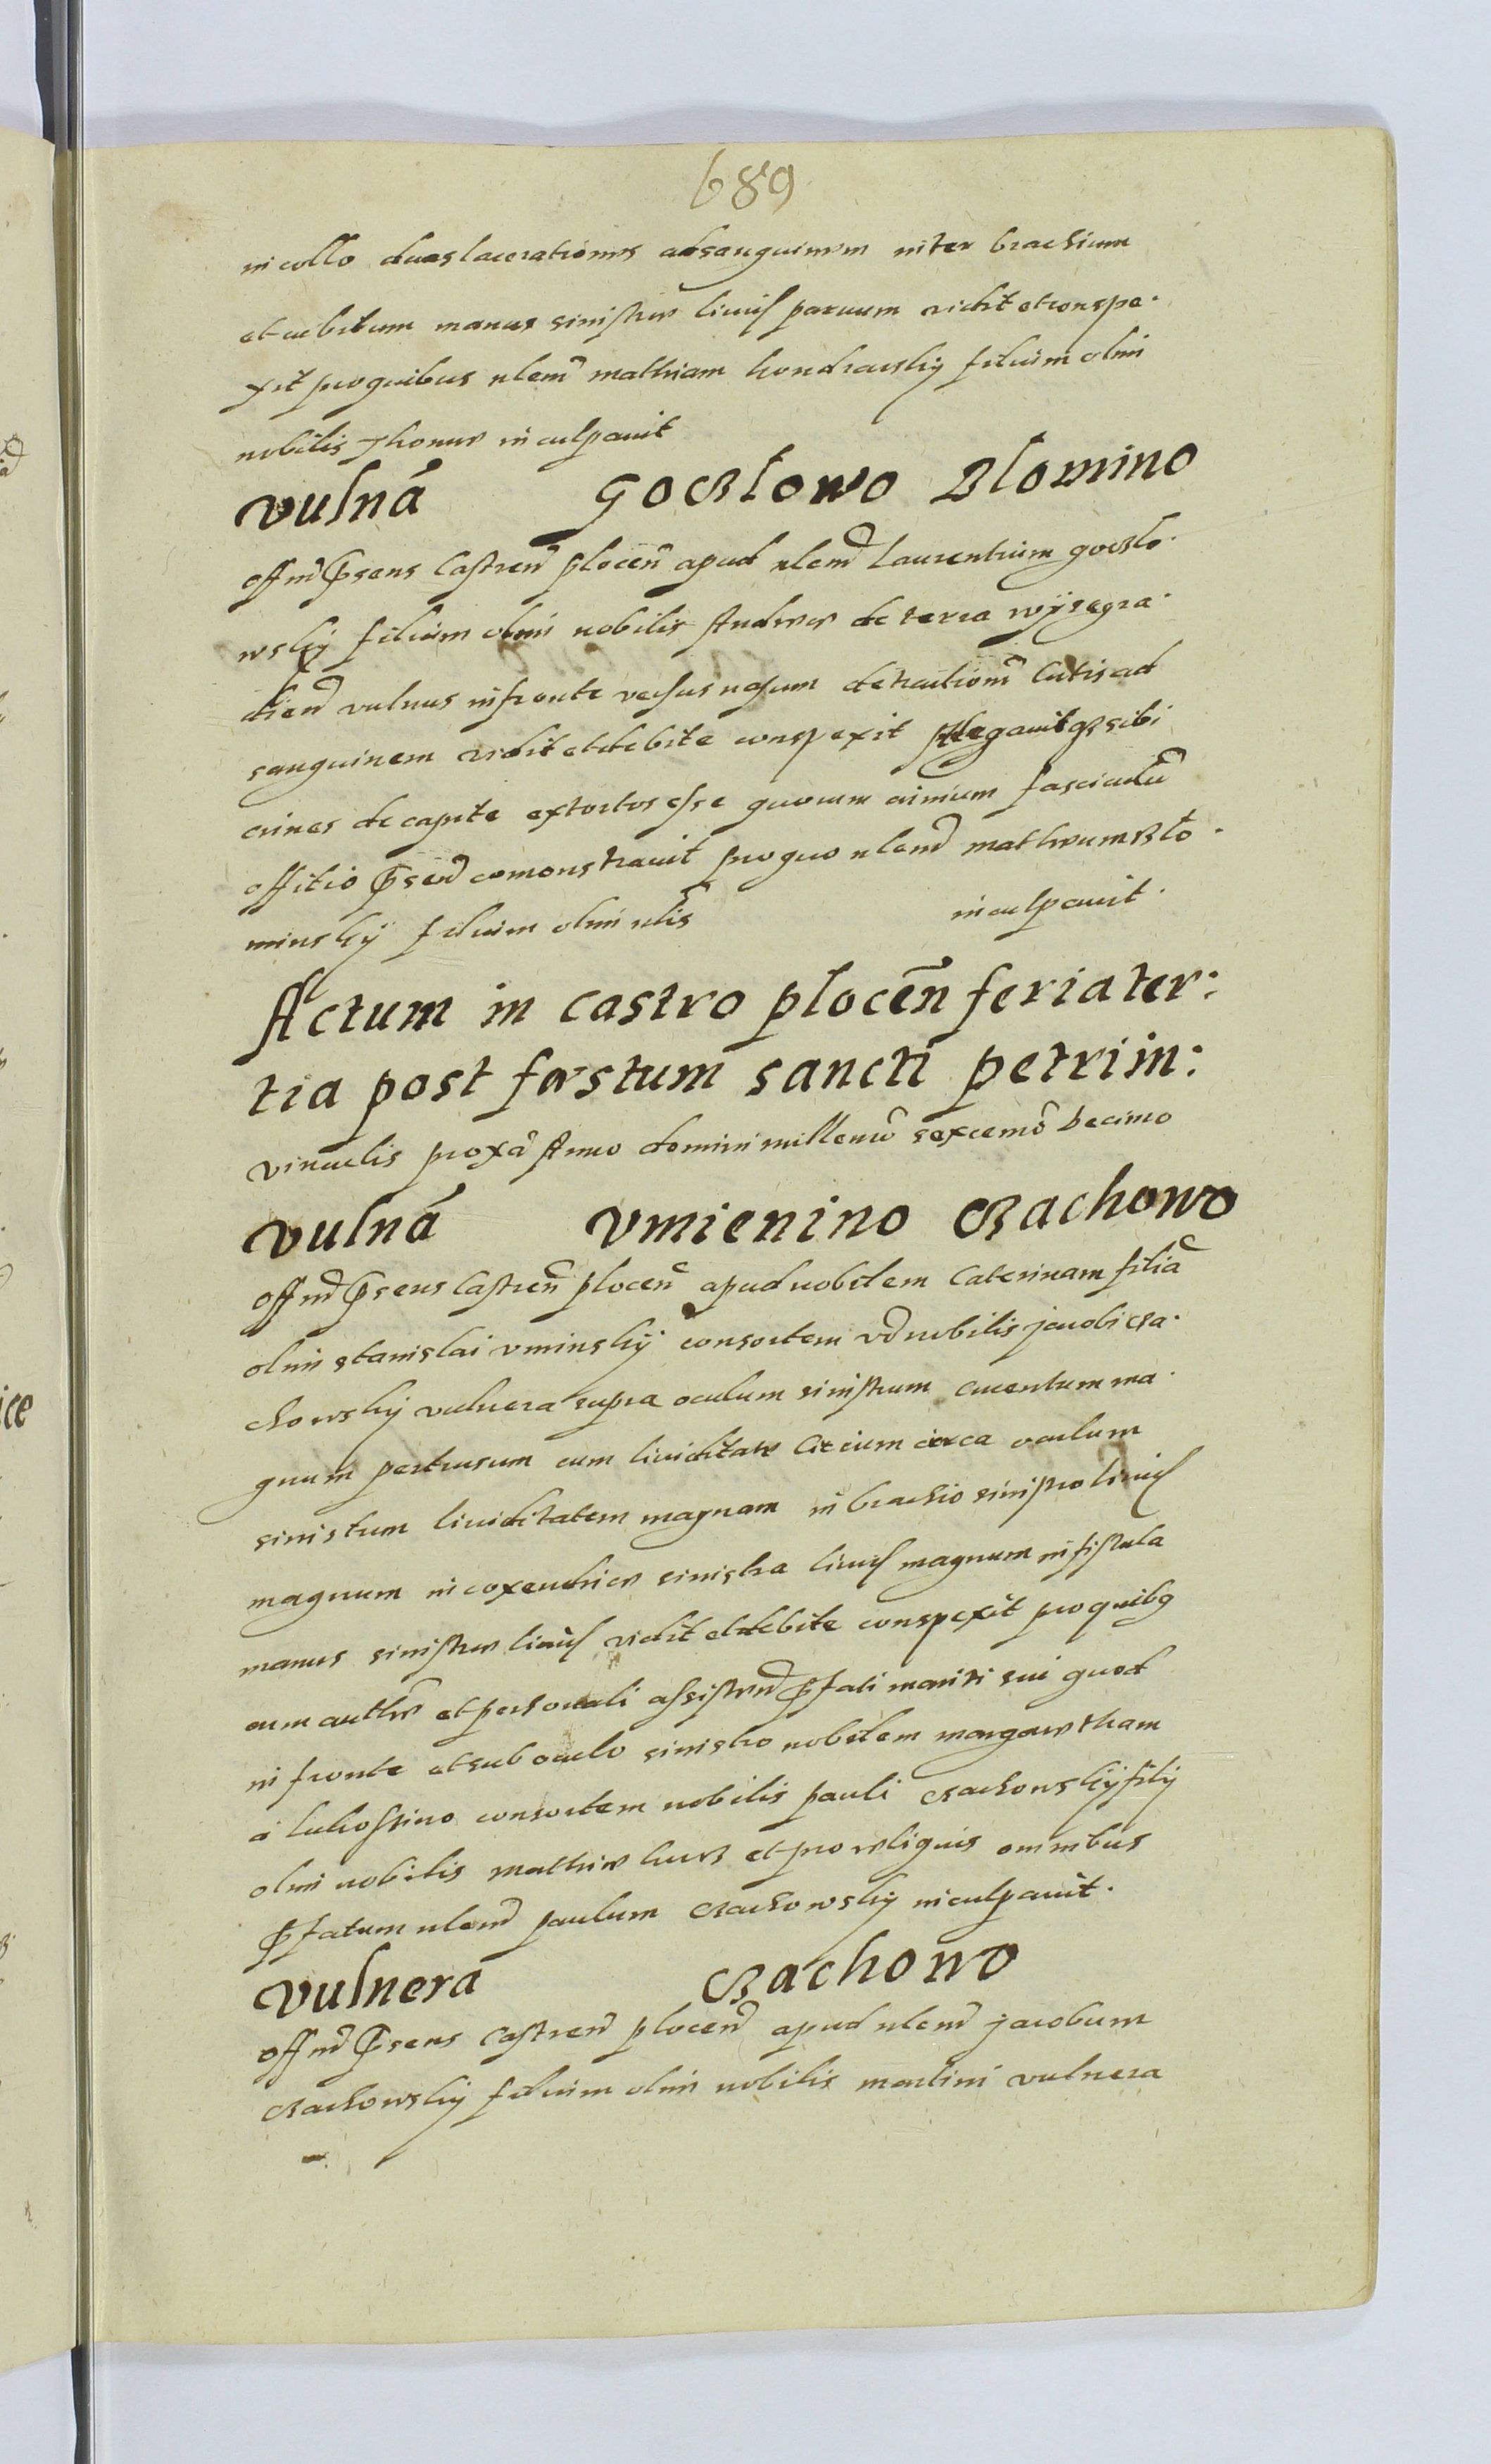 689
in collo duas lacerationes ad sanguinem inter brachium
et cubitum manus sinistre liuiũ paruum vidit et conspe.
xit pro quibus nlem̃ mathiam kondraczky filium olim
nobilis Thome inculpauit
vulnã Goczlowo Zlomino
offm̃ p̃sens Castreñ plocen̄ apud nlem̃ Laurentium goczlo.
wsky filium olim nobilis Andree de terra wyszegra.
dieñ vulnus in fronte versus nasum detractionẽ Cutis ad
sanguinem vidit et debite conspexit allegauitqȝ sibi
crines de capite extortos esse quorum crinium fasciculũ
offitio p̃senĩ comonstrauit pro quo nlem̃ matheum zlo.
minsky filium olim nlis̃ inculpauit.
Actum in castro plocen̄ feria ter:
tia post festum sancti petri in:
vinculis proxã Anno domini millemõ sexcemõ decimo
vulnã vmienino czachowo
offm̃ p̃sens Castreñ plocen̄ apud nobilem Caterinam filiã
olim stanislai vminsky consortem vñ nobilis jacobi cza.
chowsky vulnera supra oculum sinistrum cruentum ma.
gnum pertusum cum liuiditate Circium circa oculum
sinistum liuiditatem magnam in brachio sinistro liuiũ
magnum in coxendice sinistra liuiũ magnum in fistula
manus sinistre liuiũ vidit et debite conspexit pro quibg
cum authẽ et personali assistenĩ p̃fati mariti sui quod
in fronte et sub oculo sinistro nobilem margaretham
a lukossino consortem nobilis pauli czachowsky filij
olim nobilis mathie et pro reliquis omnibus
p̃fatum nlem̃ paulum czachowsky inculpauit.
vulnera czachowo
offm̃ p̃sens Castreñ plocen̄ apud nlem̃ jacobum
czachowsky filium olim nobilis martini vulnera